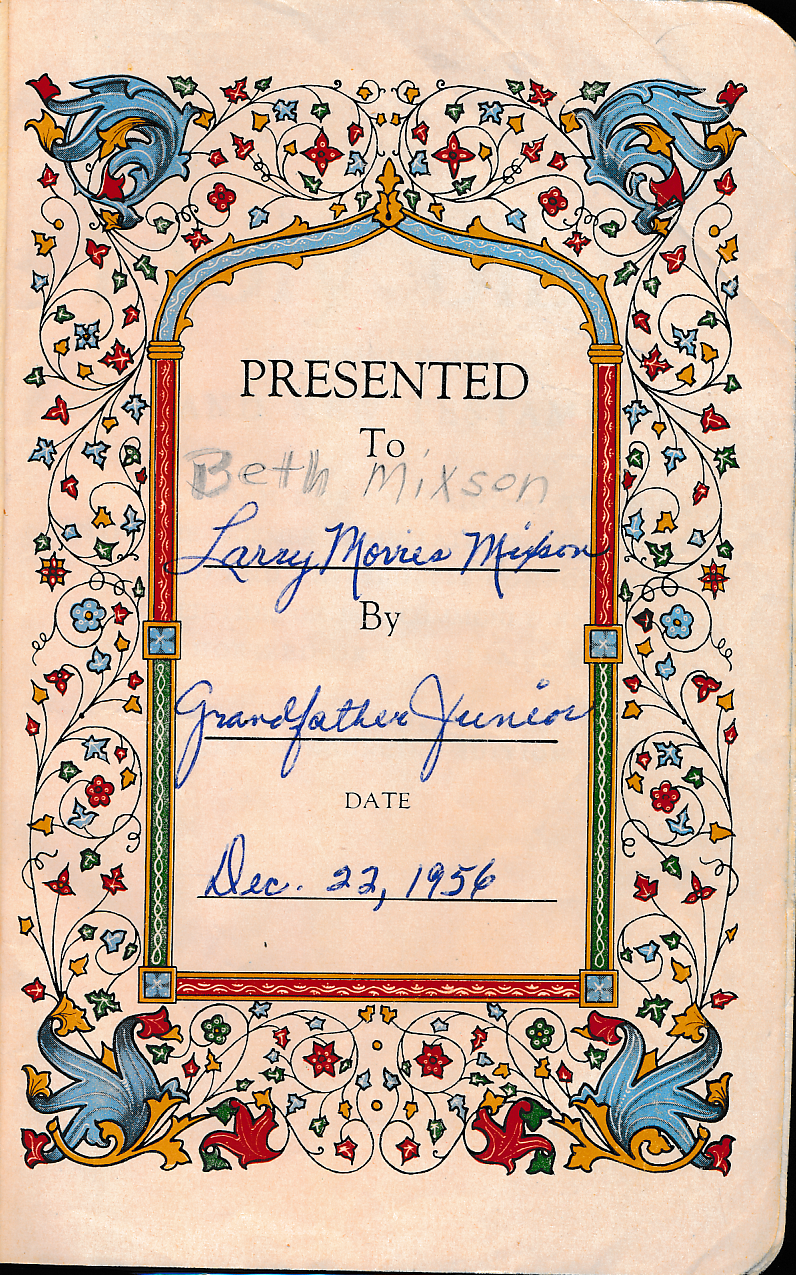 PRESENTED
To
Beth Mixson
Larry Morris Mixson
By
Grandfather Junior
DATE
Dec. 22, 1956